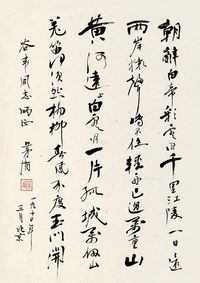 朝辭白帝彩雲間千里江陵一日還
兩岸猿聲啼不住輕舟已過萬重山
黃河遠上白雲間一片孤城萬仞山
羌笛何須怨楊柳春風不度玉門關
同志 正
茅盾
一九七 年
三月北京